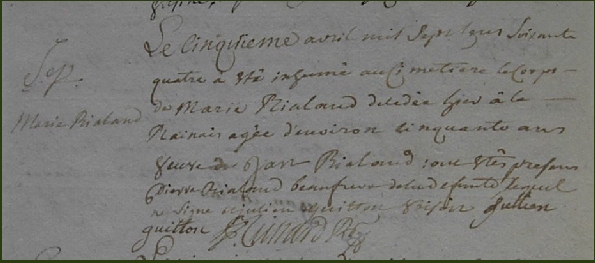 Sep.
Marie Rialand
Le cinquieme avril mil Sept Cens Soixante
quatre a eté inhumé au Cimetiere le Corps
de Marie Rialand decedée hier à la
agée d'environ Cinquante ans
veuve de Jan Rialand ont etés presens
pierre Rialand beaufrere de la defunte lequel
signe et julien guitton Julien
guitton